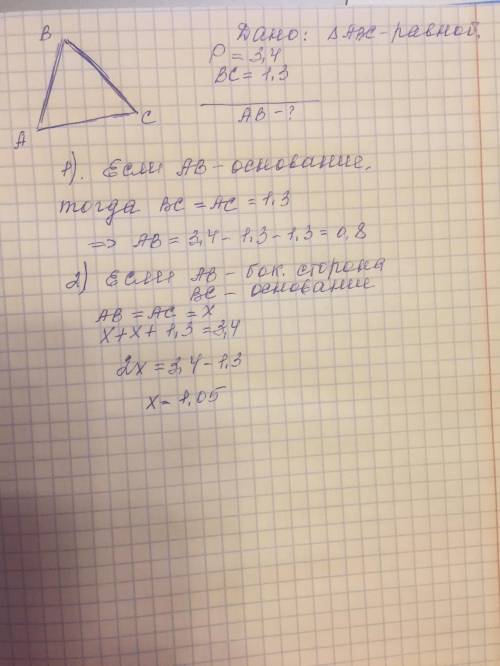 B
A
C
Дано: △ABC-равной.
P = 3,4
BC = 1,3
AB-?
1). Если AB-основание,
тогда BC = AC = 1,3
=> AB = 3,4 - 1,3 - 1,3 = 0,8
2) Если AB - бок. сторона
BC - основание
AB = AC = x
x + x + 1,3 = 3,4
2x = 3,4 - 1,3
x = 1,05